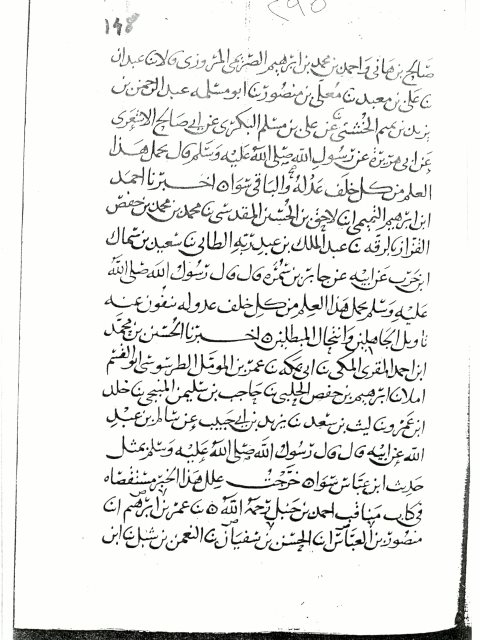 ٢٩٥
١٤٨
صالح بن هانئ واحمد بن محمد بن ابرهيم الصريمي المروزي قالا نا عبدان
نا علي بن معبد نا معلى بن منصور نا ابو مسلمه عبد الرحمن بن
يزيد بن تميم الخشني عن علي بن مسلم البكري عن ابي صالح الاشعري
عن ابي هريرة عن رسول الله صلى الله عليه وسلم قال يحمل هذا
العلم من كل خلف عدوله والباقي سوا اخبرنا احمد
ابن ابرهيم التميمي انا لاحق بن الحسين المقدسي نا محمد بن محمد بن حفص
القزاز بالرقه نا عبد الملك بن عبد ربه الطائي نا سعيد بن سماك
ابن حرب عن ابيه عن جابر بن سمره قال قال رسول الله صلى الله
عليه وسلم يحمل هذا العلم من كل خلف عدوله ينفون عنه
تاويل الجاهلين وانتحال المبطلين اخبرنا الحسن بن محمد
ابن احمد المقرئ المكي نا ابي بمكه نا عمر بن المومل الطرسوسي ابو القسم
املا نا ابرهيم بن حفص الحلبي نا حاجب بن سليمن المنبجي نا خلد
ابن عمرو نا ليث بن سعد نا يزيد بن ابي حبيب عن سالم بن عبد
الله عن ابيه قال قال رسول الله صلى الله عليه وسلم بمثل
حديث ابن عباس سوا خرجت علل هذا الخبر مستقصاه
في كتاب مناقب احمد بن حنبل رحمه الله نا عمر بن ابرهيم انا
منصور بن العباس انا الحسن بن سفيان نا النعمن بن شبل نا ابن